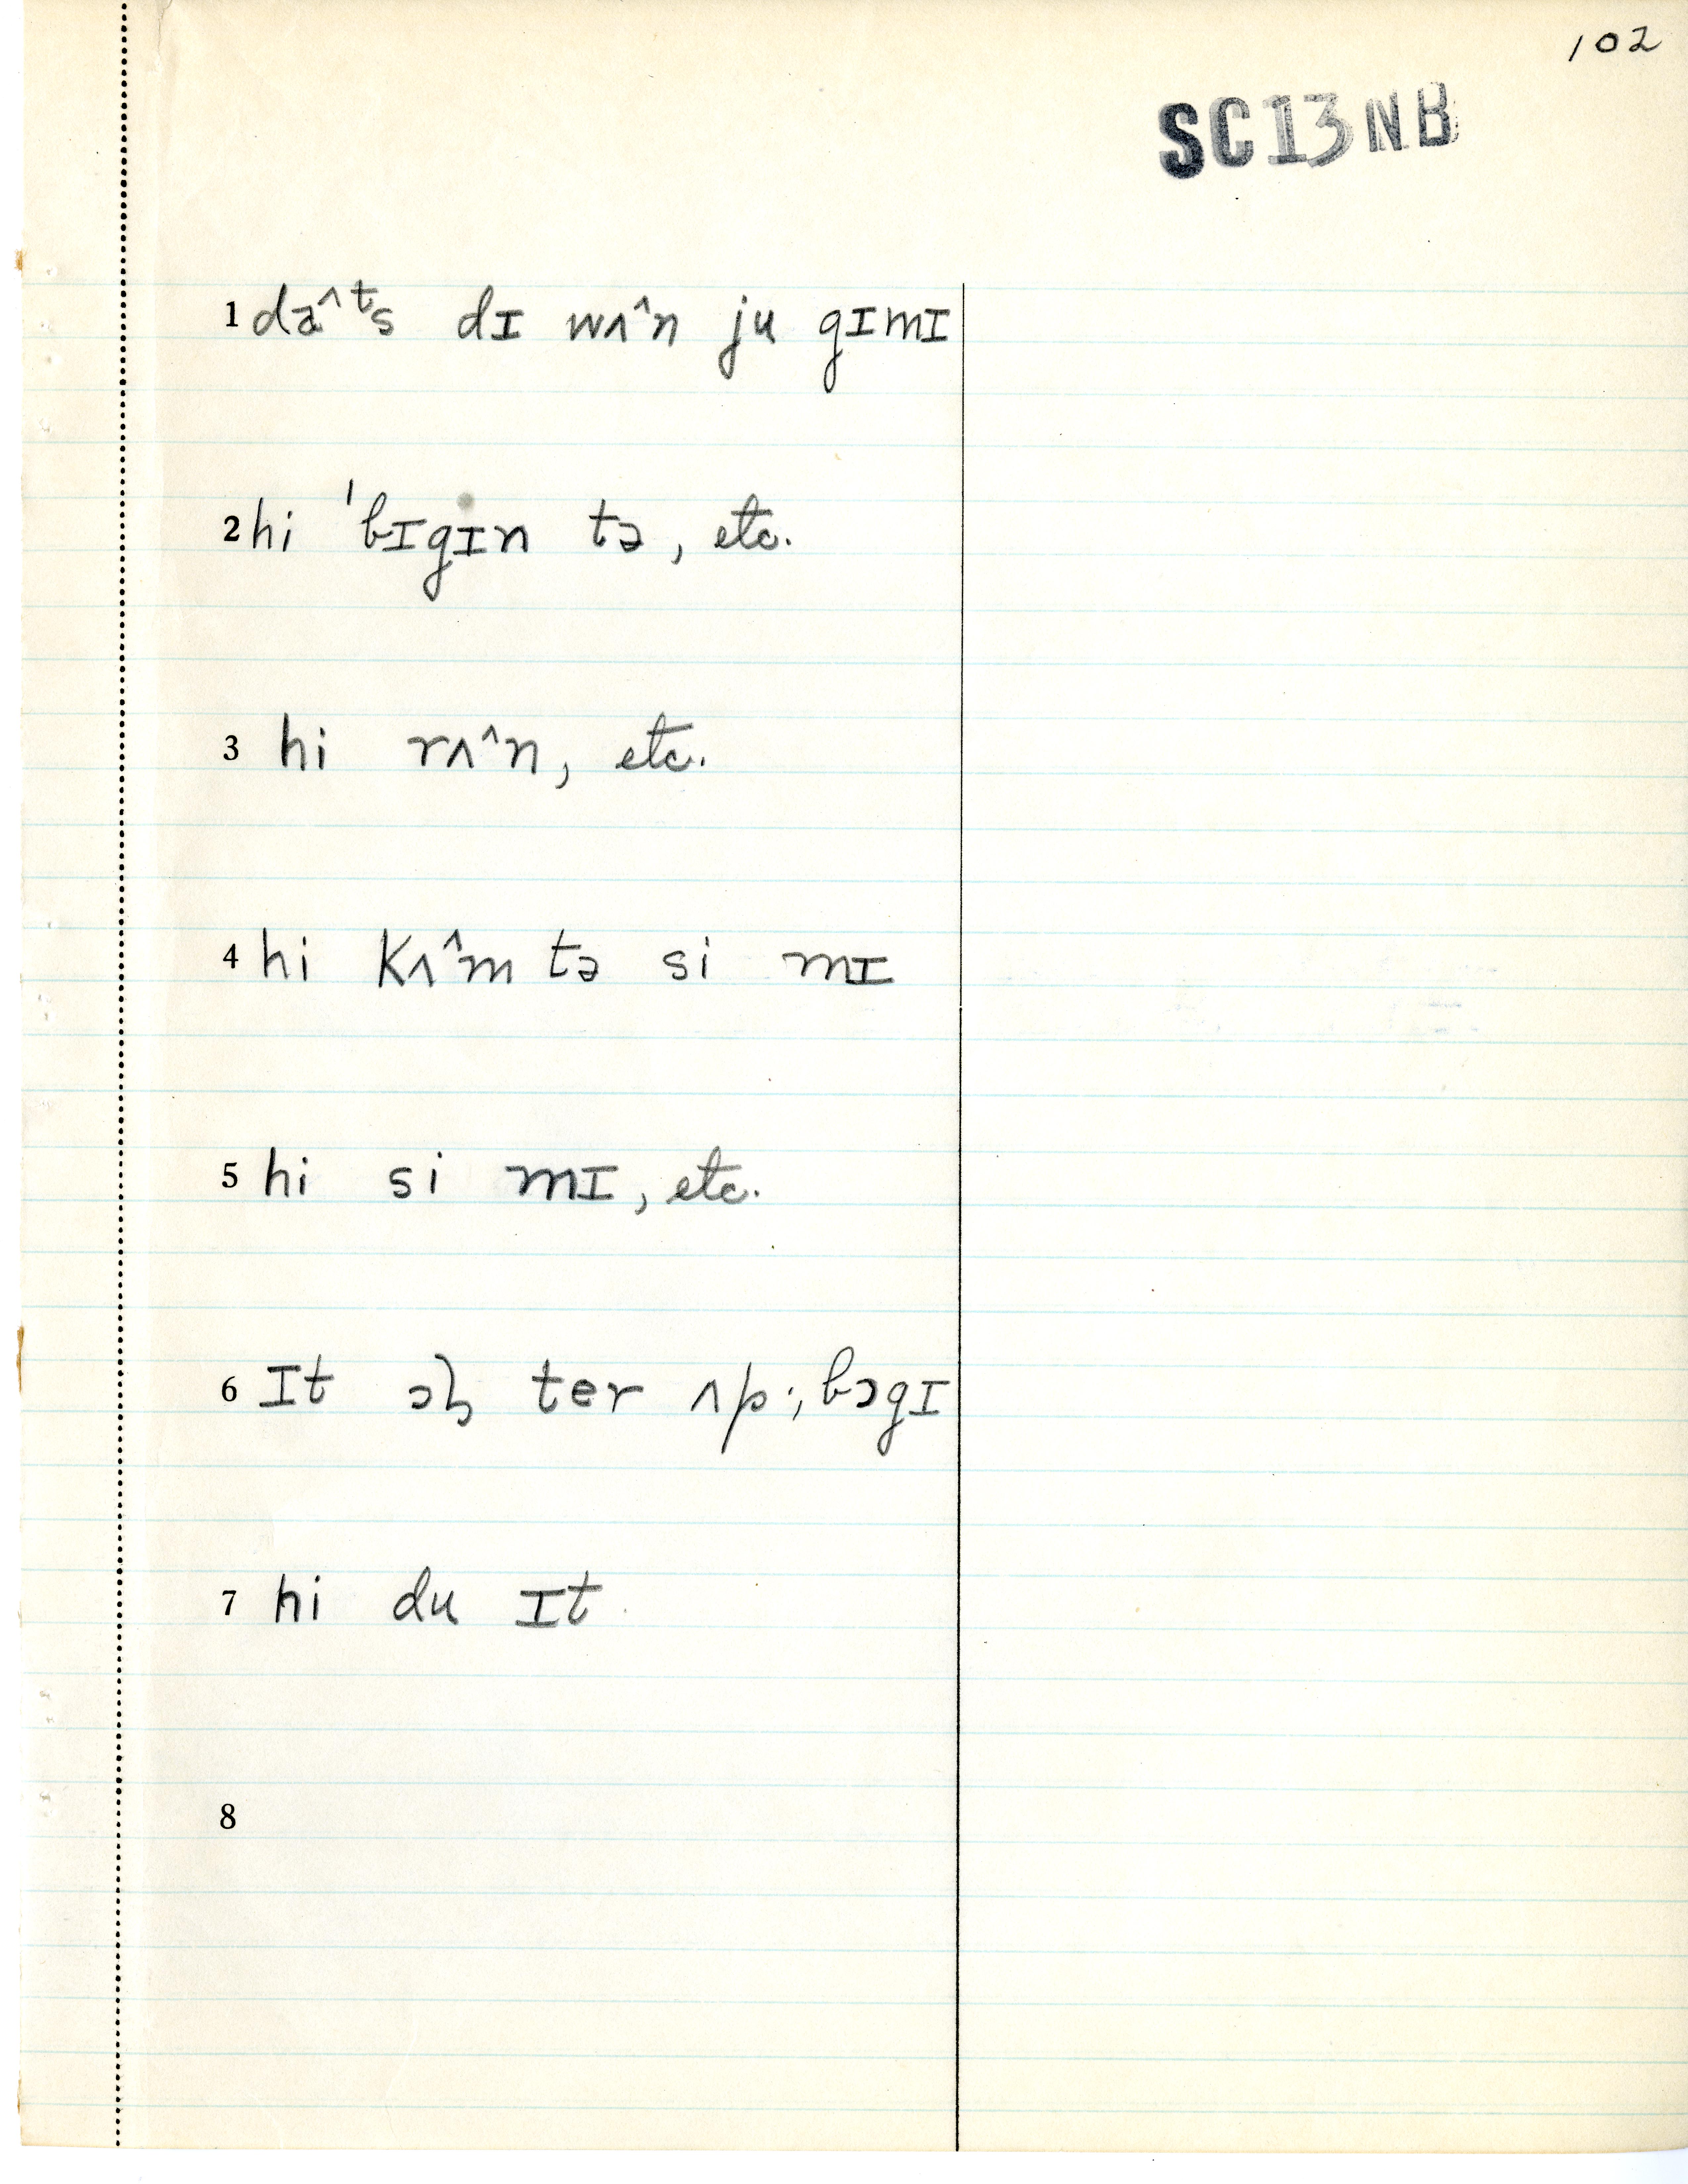 102
SC13NB
1 da^ᵗs dɪ wʌ^n ju gɪmɪ
2 hi 'bɪgɪn tə, etc.
3 hi rʌ^n, etc.
4 hi kʌ^m tə si mɪ
5 hi si mɪ, etc.
6 ɪt ter ʌp; bɔgɪ
7 hi du ɪt
8